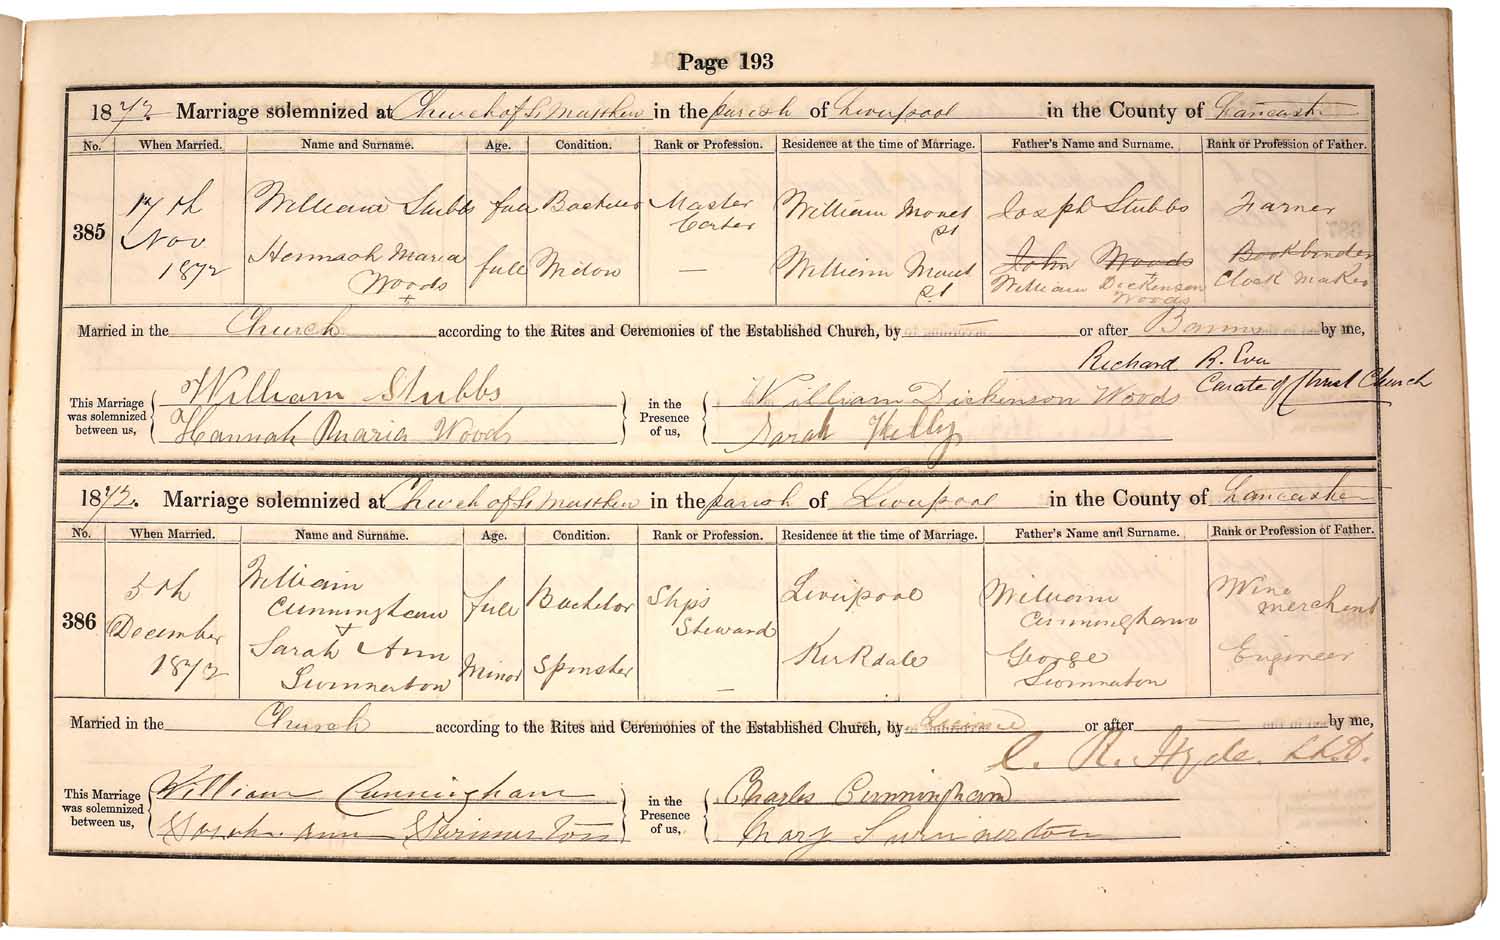 Page 193
1872 Marriage solemnized at Church of St Matthew in the parish of Liverpool in the County of Lancaster
No. When Married. Name and Surname. Age. Condition. Rank or Profession. Residence at the time of Marriage. Father's Name and Surname. Rank or Profession of Father.
385 17th Nov 1872
William Stubbs full Bachelor Master Carter William Moult St Joseph Stubbs Farmer
Hannah Maria Woods full Widow — William Moult St John Woods Bookbinder
+
William Dickenson Woods Clock Maker
Married in the Church according to the Rites and Ceremonies of the Established Church, by — or after Banns by me,
Richard R. Eva
Curate of Christ Church
This Marriage was solemnized between us,
William Stubbs
Hannah Maria Woods
in the Presence of us,
William Dickinson Woods
Sarah Kelly
1872. Marriage solemnized at Church of St Matthew in the parish of Liverpool in the County of Lancaster
No. When Married. Name and Surname. Age. Condition. Rank or Profession. Residence at the time of Marriage. Father's Name and Surname. Rank or Profession of Father.
386 5th December 1872
William Cunningham full Bachelor Ship's Steward Liverpool William Cunningham Wine merchant
+
Sarah Ann Swinnerton Minor Spinster — Kirkdale George Swinnerton Engineer
Married in the Church according to the Rites and Ceremonies of the Established Church, by Licence or after — by me,
C. R. Hyde. LL.D.
This Marriage was solemnized between us,
William Cunningham
Sarah Ann Swinnerton
in the Presence of us,
Charles Cunningham
Mary Swinnerton